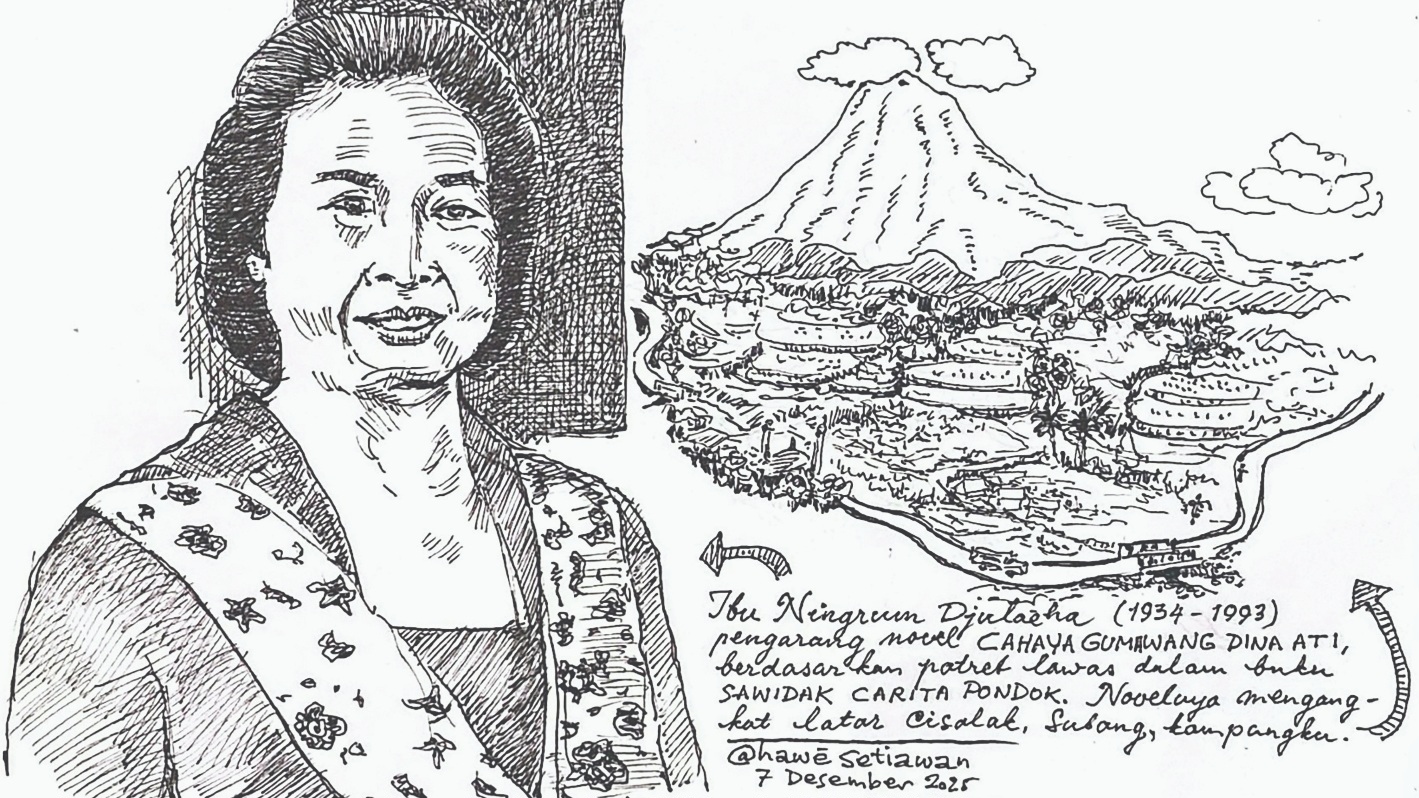 Ibu Ningrum Djulaeha (1934-1993)
pengarang novel CAHAYA GUMAWANG DINA ATI,
berdasarkan potret lawas dalam buku
SAWIDAK CARITA PONDOK. Novelnya mengang-
kat latar Cisalak, Subang, kampungku.
@hawē setiawan
7 Desember 2025